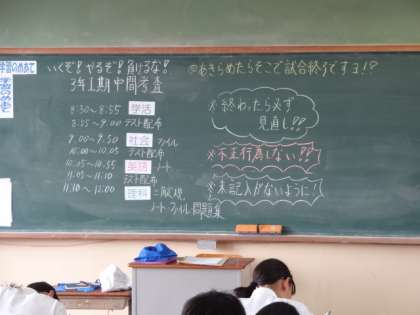 学習のめあて
学習のめあて
いくぞ!やるぞ!解けるな!
3年1期中間考査
◎あきらめたらそこで試合終了ですヨ!?
8:30〜8:55 学活
8:55〜9:00 テスト配布
9:00〜9:50 社会 ファイル
10:00〜10:05 テスト配布
10:05〜10:55 英語 ノート
11:05〜11:10 テスト配布
11:10〜12:00 理科
ノート ファイル 問題集
※終わったら必ず
見直し!!
※不正行為しない??
※未記入がないように!